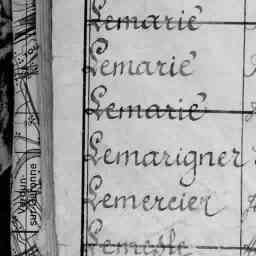 Lemarié
Lemarié
Lemarié
Lemarigner
Lemercier
Lemesle
Verdun-
sur-Garonne